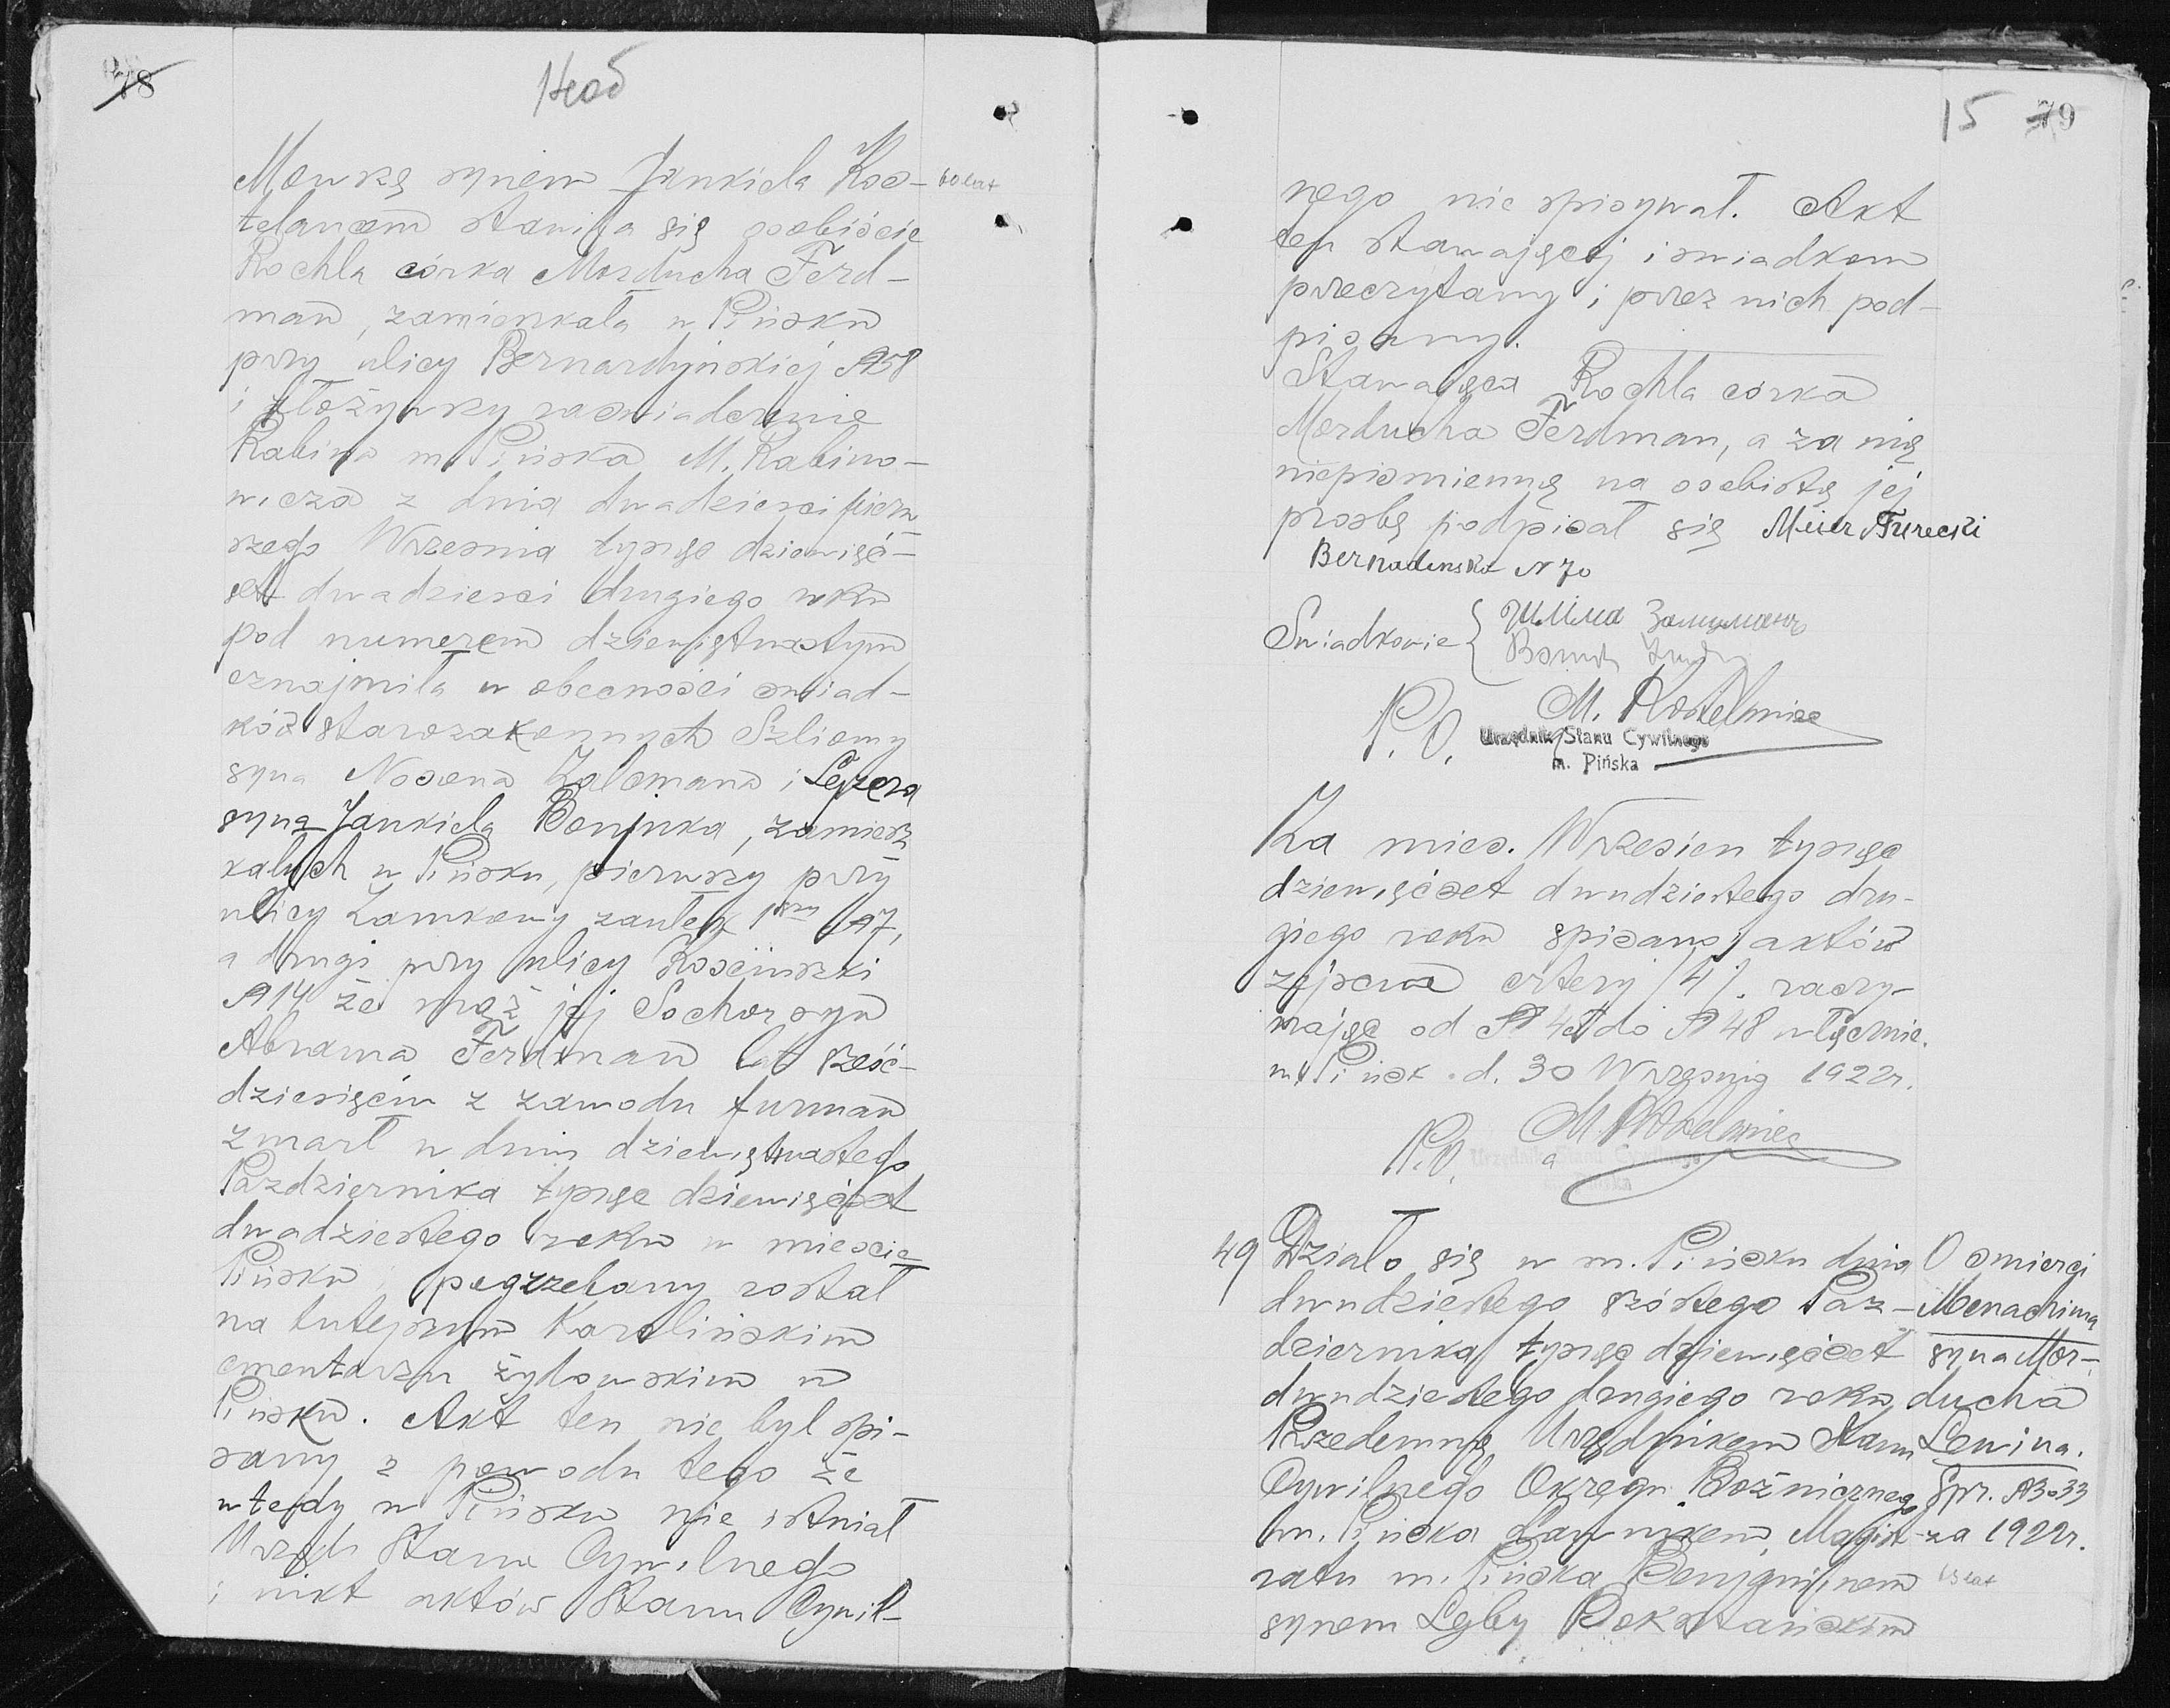 78
Mowszą synem Jankiela Kos-
60 lat
telańcem stawiła się osobiście
Rochla córka Morducha Ferd-
man, zamieszkała w Pińsku
przy ulicy Bernardyńskiej №58
i złożywszy zaświadczenie
Rabina m. Pińska M. Rabino-
wicza z dnia dwadzieści pierw
szego Września tysiąc dziewięć-
set dwadzieści drugiego roku
pod numerem dziewiętnastym
oznajmiła w obecności świad-
ków starozakonnych Szliomy
syna Nosona Zalcmana i Lejzera
syna Jankiela Bonjuka, zamiesz
kałych w Pińsku, pierwszy przy
ulicy Zamkowy zaułek 1szy №7,
a drugi przy ulicy Kościuszki
№14 że mąż jej Sochor syn
Abrama Ferdman lat sześć-
dziesięciu z zawodu furman
zmarł w dniu dziewiętnastego
Października tysiąc dziewięćset
dwadziestego roku w mieście
Pińsku pogrzebany został
na tutejszym Karolińskim
cmentarzu żydowskim w
Pińsku. Akt ten nie był spi-
sany z powodu tego że
wtedy w Pińsku nie istniał
Urząd Stanu Cywilnego
i nikt aktów Stanu Cywil-
15 79
nego nie spisywał. Akt
ten stawającej i świadkom
przeczytany i przez nich pod-
pisany.
Stawająca Rochla córka
Morducha Ferdman, a za nią
niepiśmienną na osobistą jej
prośbę podpisał się Meier Turecki
Bernadinska N 70
Świadkowie { Шлиома Залцманъ
P.O. M. Kostelaniec
Urzędnik Stanu Cywilnego
m. Pińska
Za mies. Wrzesień tysiąc
dziewięćset dwudziestego dru-
giego roku spisano aktów
zejścia cztery /4/. zaczy-
nając od № 45 do № 48 włącznie.
m. Pińsk d. 30 Września 1922r.
P.O. M. Kostelaniec
Urzędnik Stanu Cywilnego
m. Pińska
49 Działo się w m. Pińsku dnia
dwudziestego szóstego Paź-
dziernika tysiąc dziewięćset
dwudziestego drugiego roku
Przedemną Urzędnikiem Stanu
Cywilnego Okręgu Bożnicznego
m. Pińska Ławnikiem Magist-
ratu m. Pińska Benjaminem
synem Lejby Boksztańskim
O śmierci
Menachima
syna Mor-
ducha
Lewina.
Spr. №33
za 1922r.